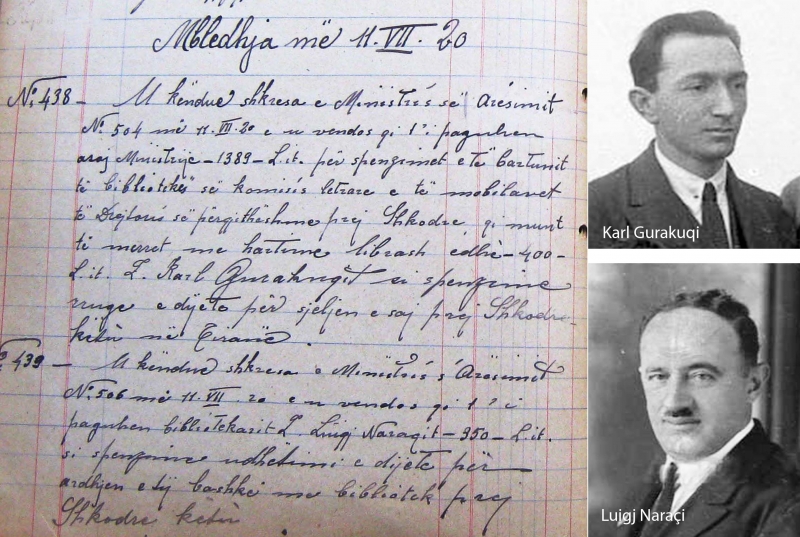 Mbledhja më 11.VII.20
No. 438 — U këndue shkresa e Ministrís së Arësimit
No 504 më 11.VII.20 e u vendos qi t'i paguhen
asaj Ministrije - 1389 - L.it. për spenzimet e të bartunit
të bibliotekës së komisís letrare e të mobilavet
të Drejtoris së përgjithëshme prej Shkodre, qi munt
të merret me hartime librash edhè - 400 -
L.it. Z. Karl Gurakuqit si spenzime
rruge e dijete për sjeljen e saj prej Shkodre
ketu në Tiranë.
439 — U këndue shkresa e Ministrís s'Arësimit
No. 506 më 11.VII.20 e u vendos qi t'i
paguhen bibliotekarit Z. Luigj Naraçit - 350 - L.it.
si spenzime udhëtimi e dijete për
ardhjen e tij bashkë me bibliotek prej
Shkodre ketu
Karl Gurakuqi
Lujgj Naraçi